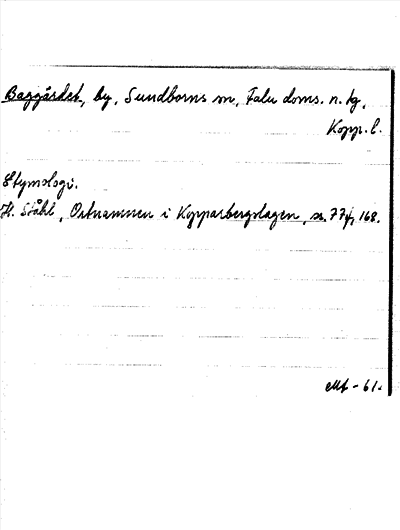 Baggårdet, by, Sundborns sn, Falu doms. n. tg,
Kopp. l.
Etymologi.
H. Ståhl, Ortnamnen i Kopparbergslagen, s. 77f, 168.
-61.